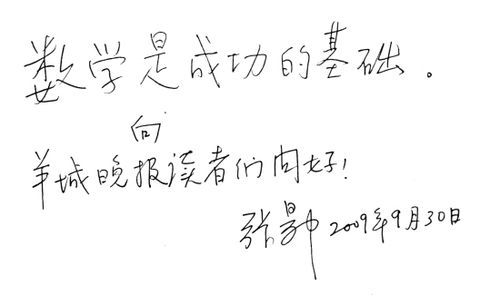 数学是成功的基础。
向
羊城晚报读者们问好!
张景中 2009年9月30日